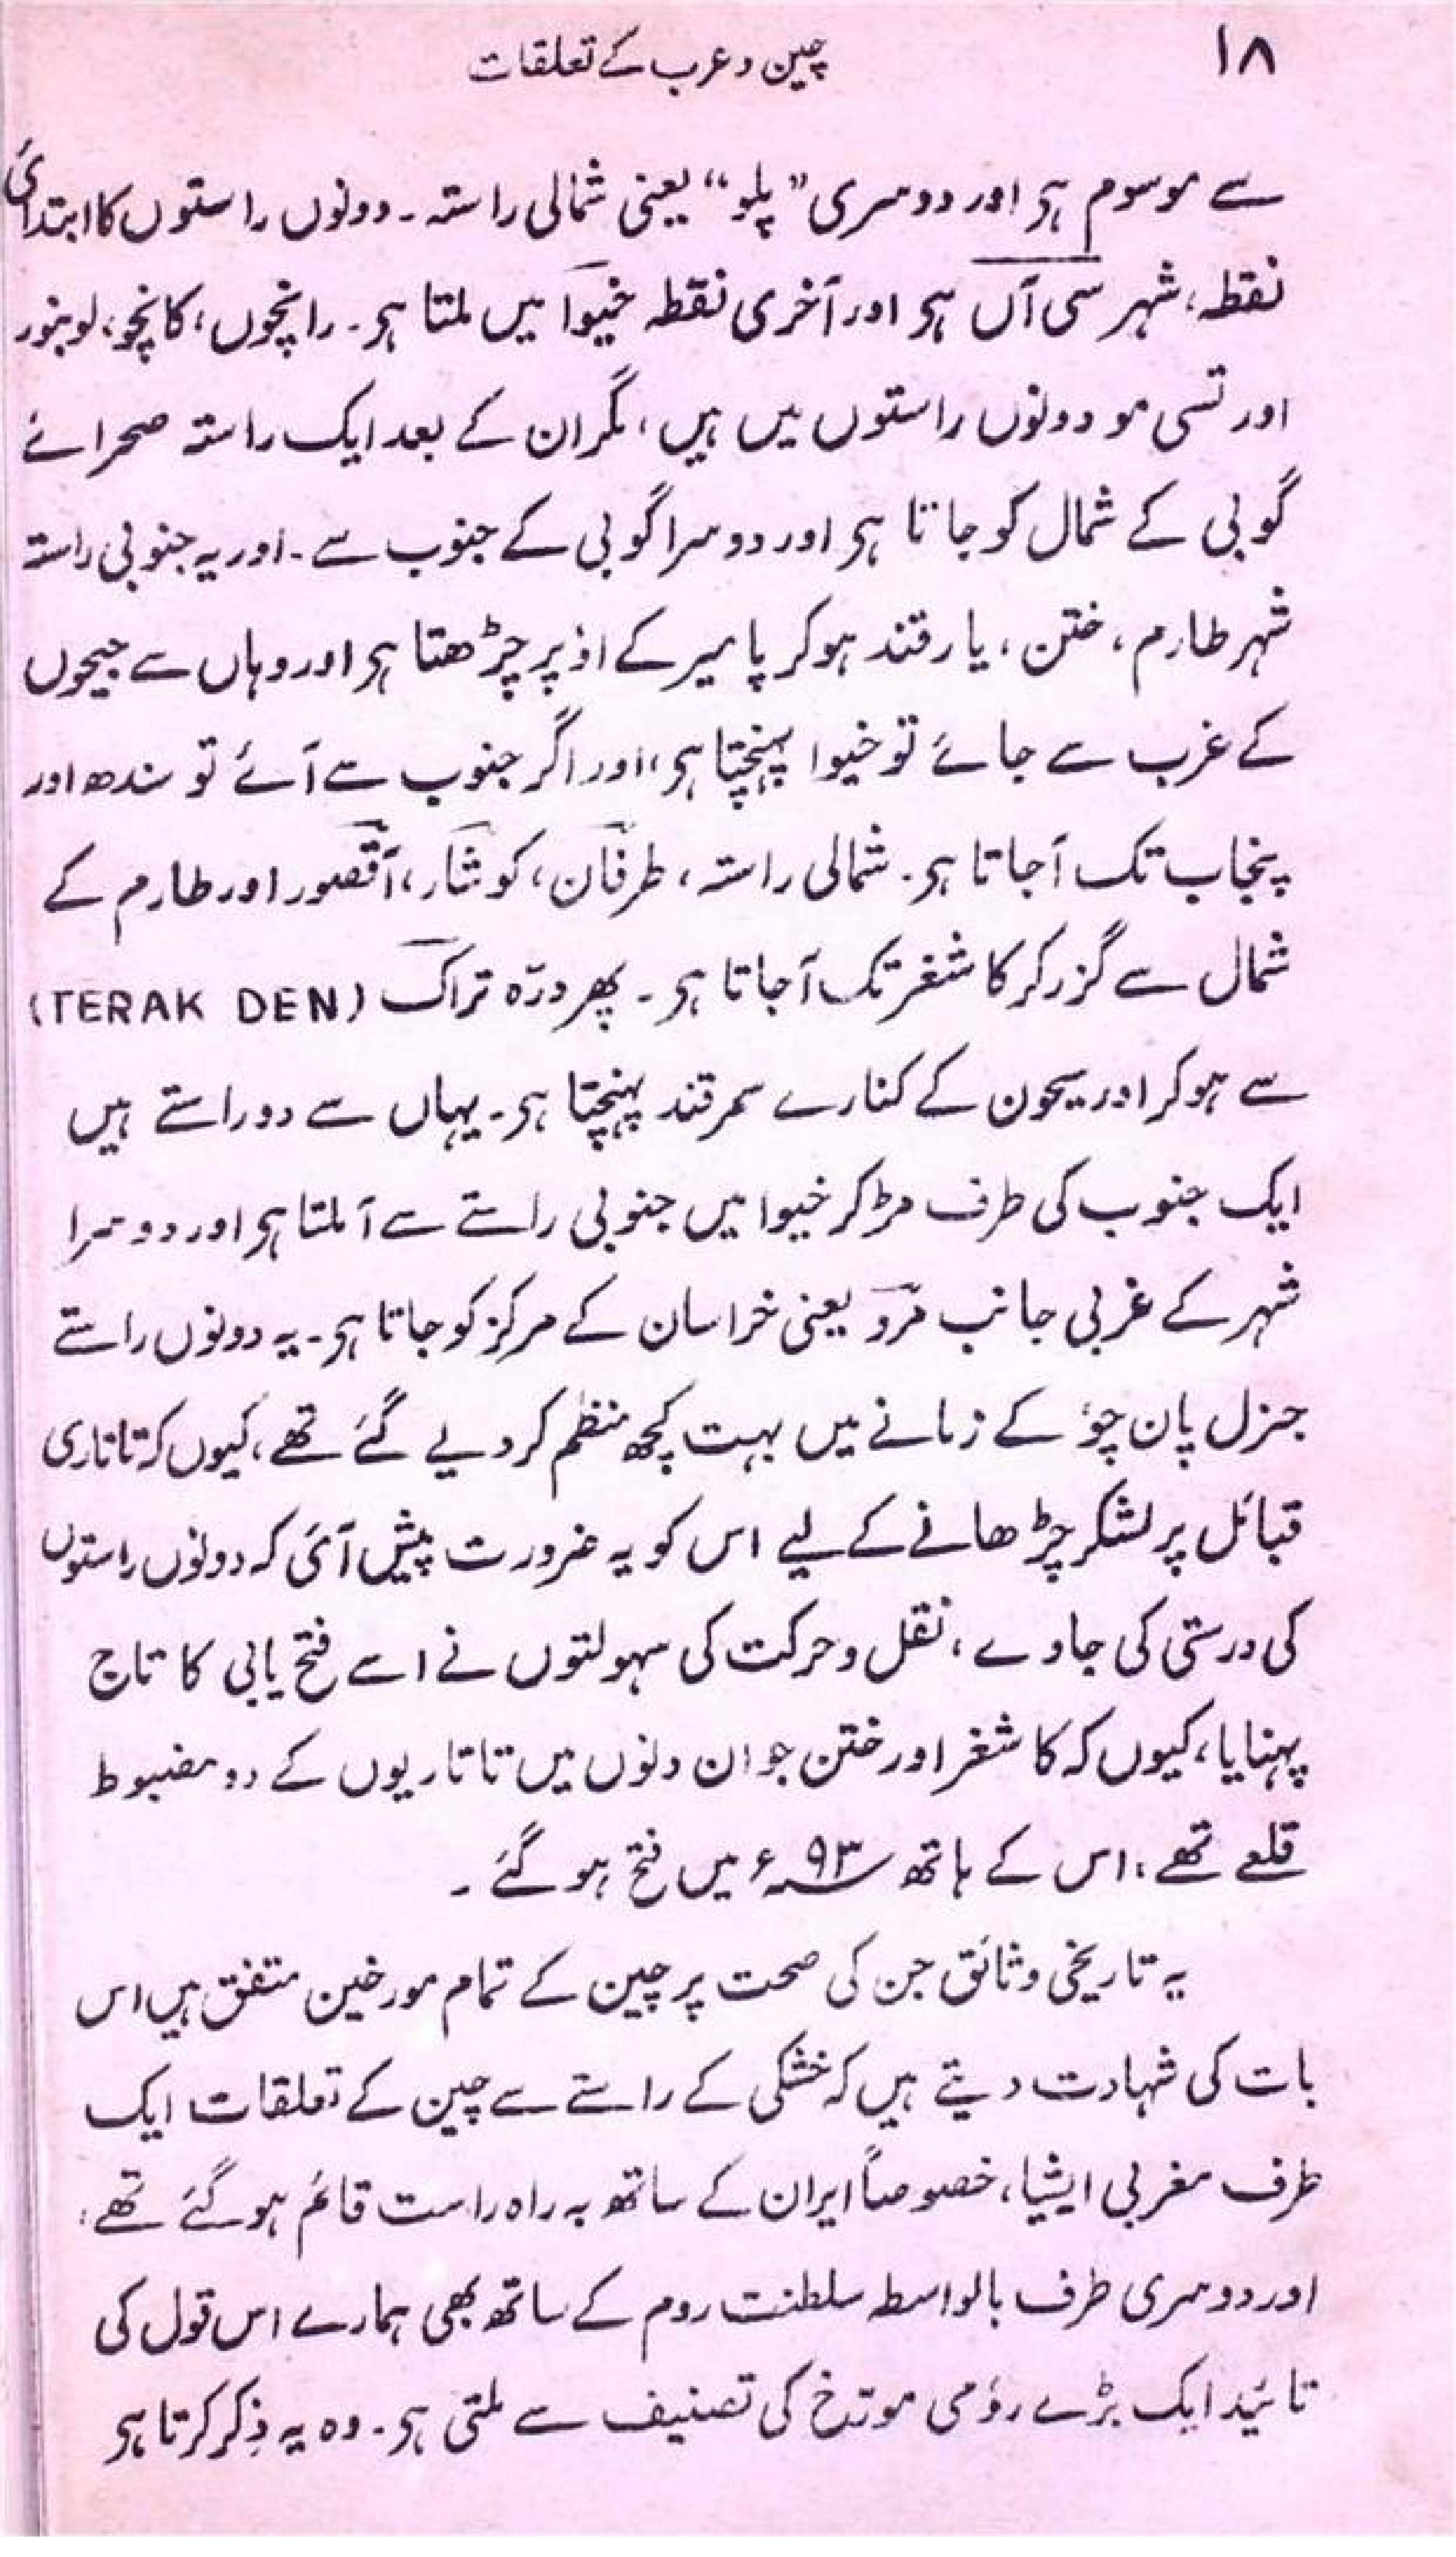 ۱۸
چین و عرب کے تعلقات
سے موسوم ہی اور دوسری ”پلو“ یعنی شمالی راستہ۔ دونوں راستوں کا ابتدائی
نقطہ، شہر سی آں ہی اور آخری نقطہ خیوا میں ملتا ہی۔ رانچوں، کانچو، لوبنور
اور تسی مو دونوں راستوں میں ہیں، مگر ان کے بعد ایک راستہ صحرائے
گوبی کے شمال کو جاتا ہی اور دوسرا گوبی کے جنوب سے۔ اور یہ جنوبی راستہ
شہر طارم، ختن، یارقند ہوکر پامیر کے اوپر چڑھتا ہی اور وہاں سے جیحوں
کے غرب سے جائے تو خیوا پہنچتا ہی، اور اگر جنوب سے آئے تو سندھ اور
پنجاب تک آجاتا ہی۔ شمالی راستہ، طرفان، کوشار، آقصور اور طارم کے
شمال سے گزر کر کاشغر تک آجاتا ہی۔ پھر درّہ تراک (TERAK DEN)
سے ہوکر اور سیحون کے کنارے سمرقند پہنچتا ہی۔ یہاں سے دو راستے ہیں
ایک جنوب کی طرف مڑکر خیوا میں جنوبی راستے سے آملتا ہی اور دوسرا
شہر کے غربی جانب مرو یعنی خراسان کے مرکز کو جاتا ہی۔ یہ دونوں راستے
جنرل پان چؤ کے زمانے میں بہت کچھ منظم کردیے گئے تھے، کیوں کہ تاتاری
قبائل پر لشکر چڑھانے کے لیے اس کو یہ ضرورت پیش آئی کہ دونوں راستوں
کی درستی کی جاوے، نقل و حرکت کی سہولتوں نے اسے فتح یابی کا تاج
پہنایا، کیوں کہ کاشغر اور ختن جو ان دنوں میں تاتاریوں کے دو مضبوط
قلعے تھے، اس کے ہاتھ سنہ ۹۳ء میں فتح ہوگئے۔
یہ تاریخی وثائق جن کی صحت پر چین کے تمام مورخین متفق ہیں اس
بات کی شہادت دیتے ہیں کہ خشکی کے راستے سے چین کے تعلقات ایک
طرف مغربی ایشیا، خصوصاً ایران کے ساتھ بہ راہ راست قائم ہوگئے تھے،
اور دوسری طرف بالواسطہ سلطنت روم کے ساتھ بھی ہمارے اس قول کی
تائید ایک بڑے رؤمی مورّخ کی تصنیف سے ملتی ہی۔ وہ یہ ذِکر کرتا ہی